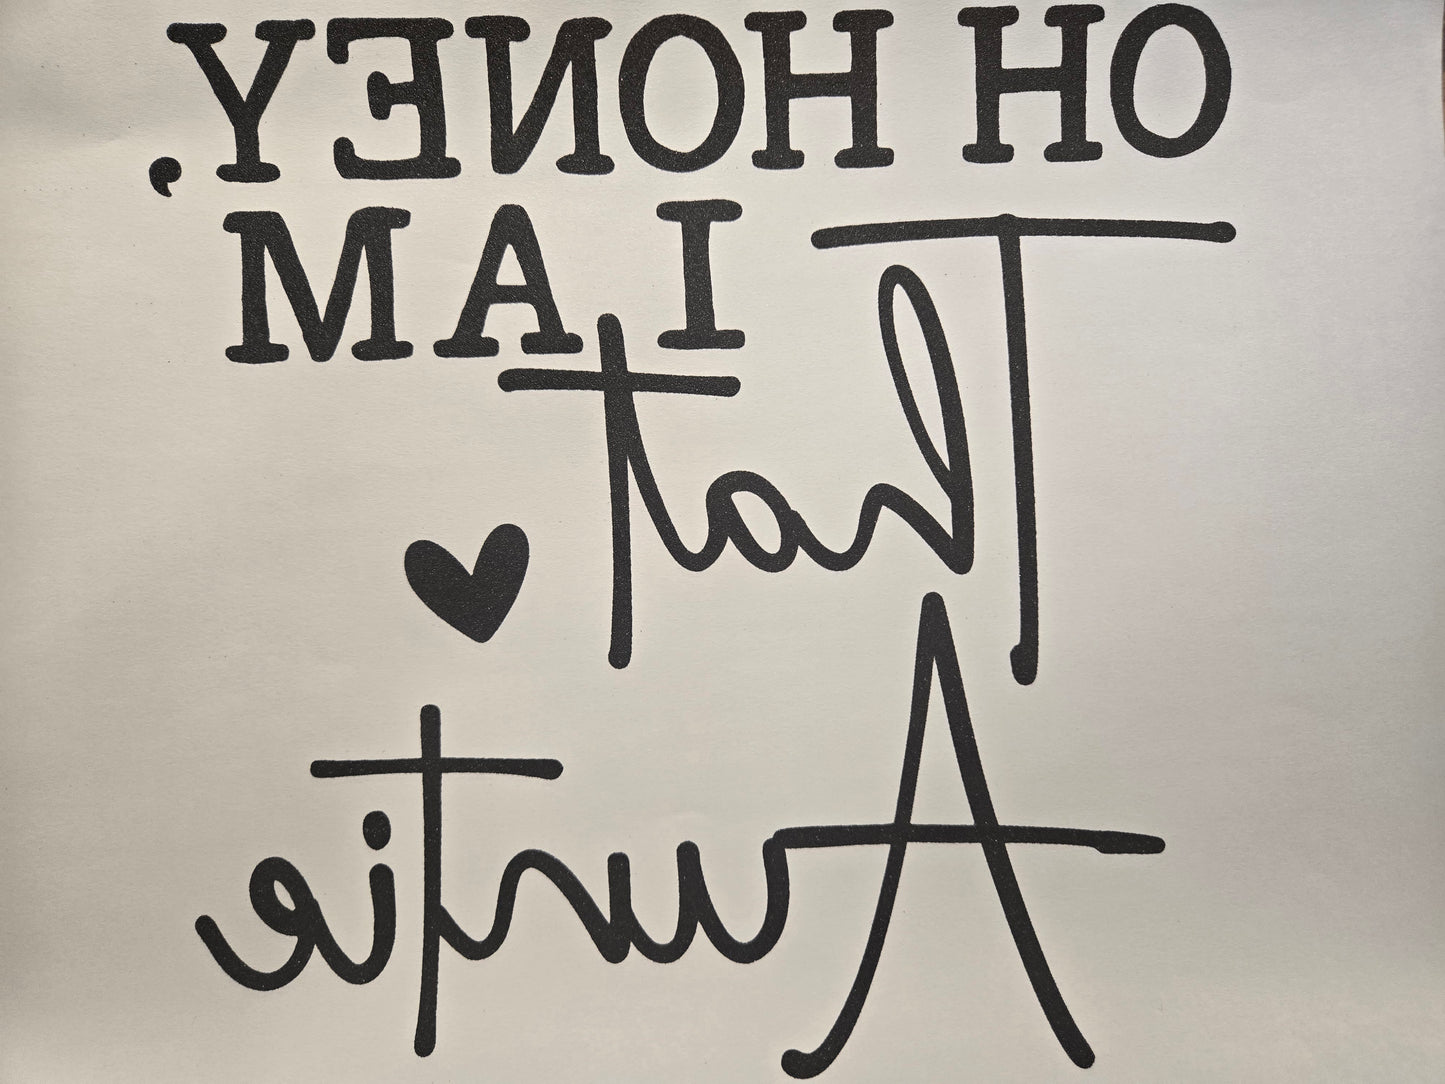 OH HONEY,
I AM
That
Auntie